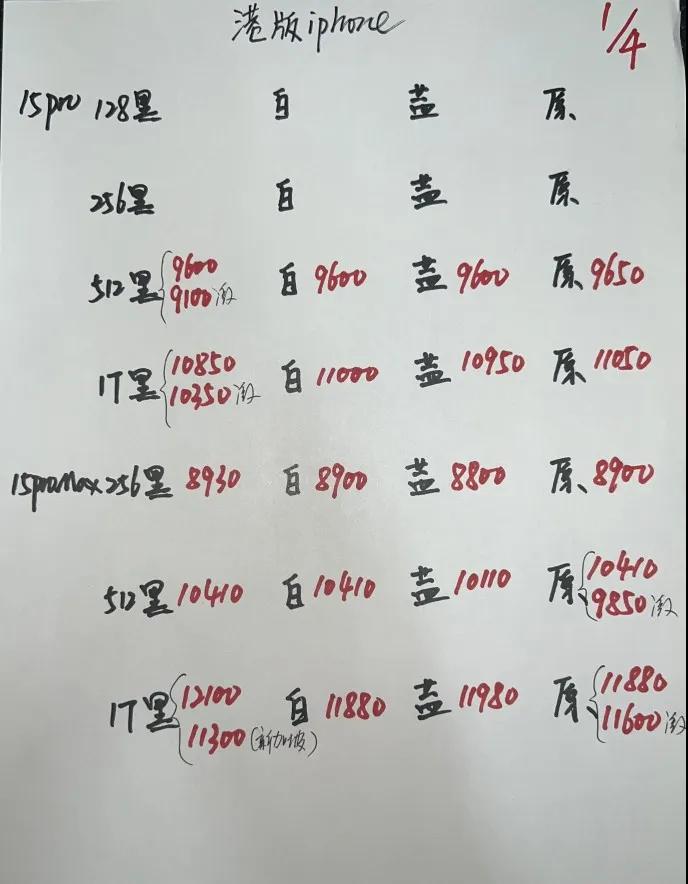 港版iphone 1/4
15pro 128黑 白 蓝 原
256黑 白 蓝 原
512黑 9600 白 9600 蓝 9600 原 9650
9100激
1T黑 10850 白 11000 蓝 10950 原 11050
10350激
15proMax 256黑 8930 白 8900 蓝 8800 原 8900
512黑 10410 白 10410 蓝 10110 原 10410
9850激
1T黑 12100 白 11880 蓝 11980 原 11880
11300(新加坡) 11600激